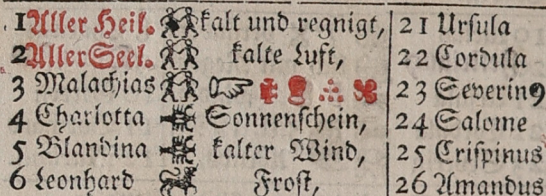 1 Aller Heil. kalt und regnigt, 21 Ursula
2 Aller Seel. kalte Luft, 22 Cordula
3 Malachias 23 Severin9
4 Chariotta Sonnenschein, 24 Salome
5 Blandina kalter Wind, 25 Crispinus
6 Leonhard Frost, 26 Amandus